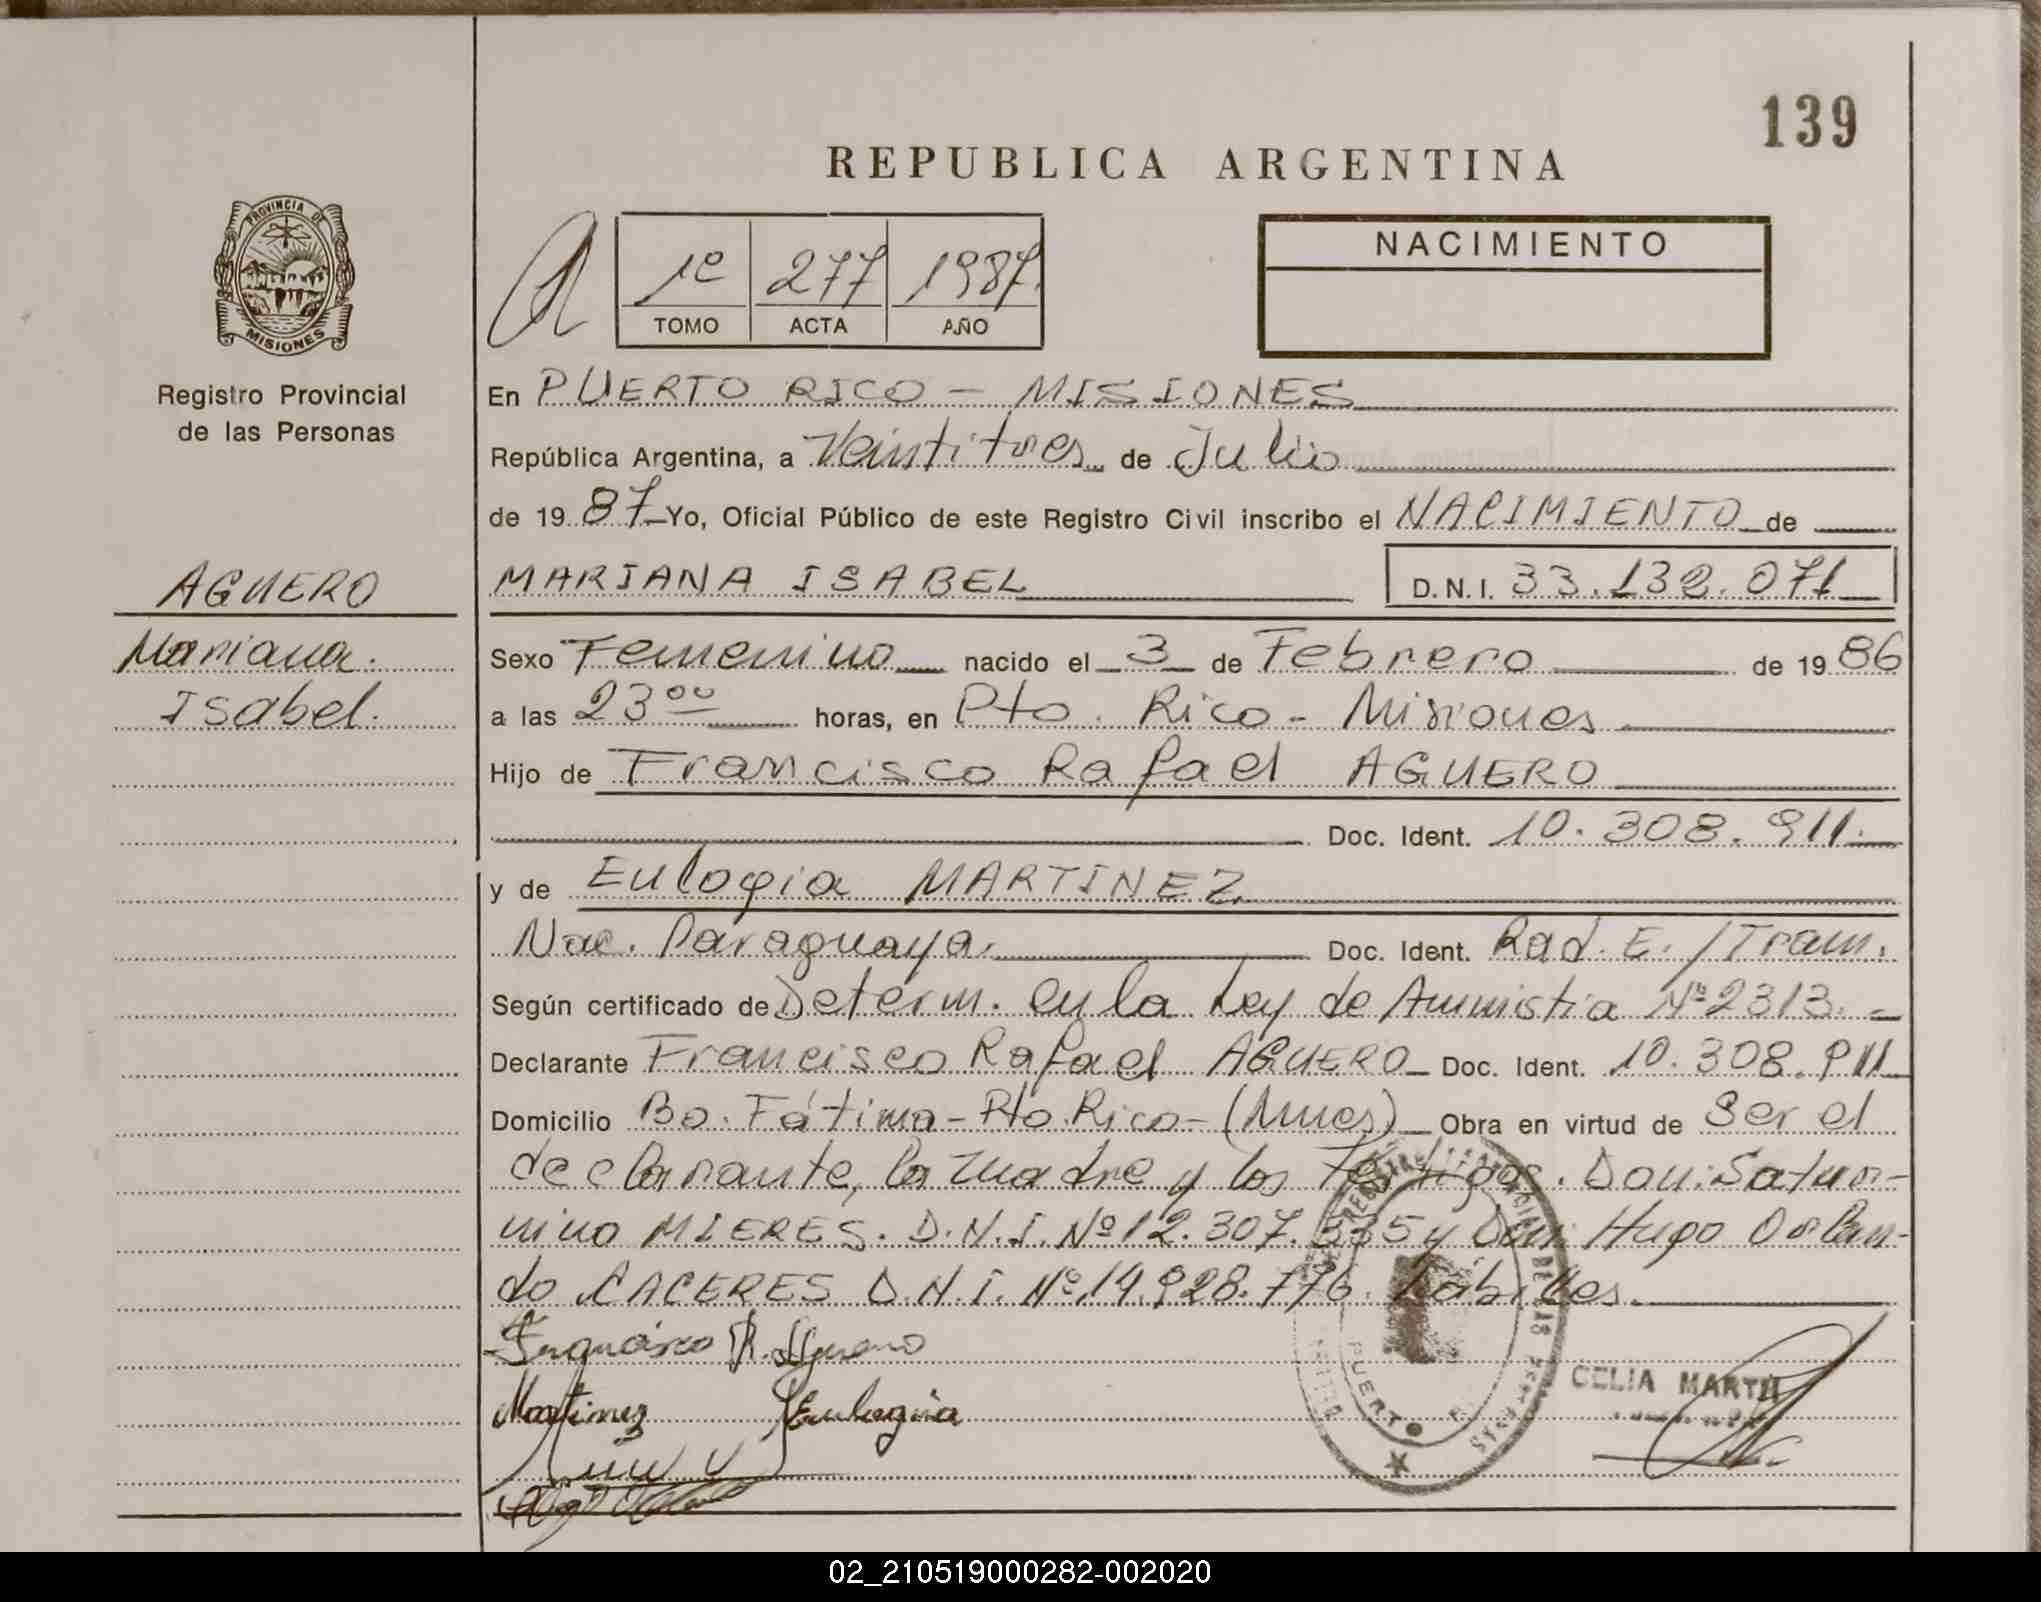 139
REPUBLICA ARGENTINA
PROVINCIA DE
MISIONES
Registro Provincial
de las Personas
1º 277 1987.
TOMO ACTA AÑO
NACIMIENTO
En PUERTO RICO - MISIONES
República Argentina, a Veintitres de Julio
de 19 87 Yo, Oficial Público de este Registro Civil inscribo el NACIMIENTO de
AGUERO
MARIANA ISABEL D.N.I. 33.132.071
Mariana.
Isabel.
Sexo Femenino nacido el 3 de Febrero de 19 86
a las 23 00 horas, en Pto. Rico - Misiones
Hijo de Francisco Rafael AGUERO
Doc. Ident. 10.308.911.
y de Eulogia MARTINEZ
Nac. Paraguaya. Doc. Ident. Rad. E./Tram.
Según certificado de Determ. en la Ley de Amnistia Nº 2313.-
Declarante Francisco Rafael AGUERO Doc. Ident. 10.308.911
Domicilio Bo. Fátima - Pto. Rico - (Mnes) Obra en virtud de Ser el
declarante, la madre y los Testigos. Don: Satur-
nino MIERES. D.N.I. Nº 12.307.335 y Don: Hugo Orlan-
do CACERES D.N.I. Nº 14.928.776. Hábiles.
Francisco R. Aguero
Martinez Eulogia
CELIA MARTA
PUERTO
02_210519000282-002020